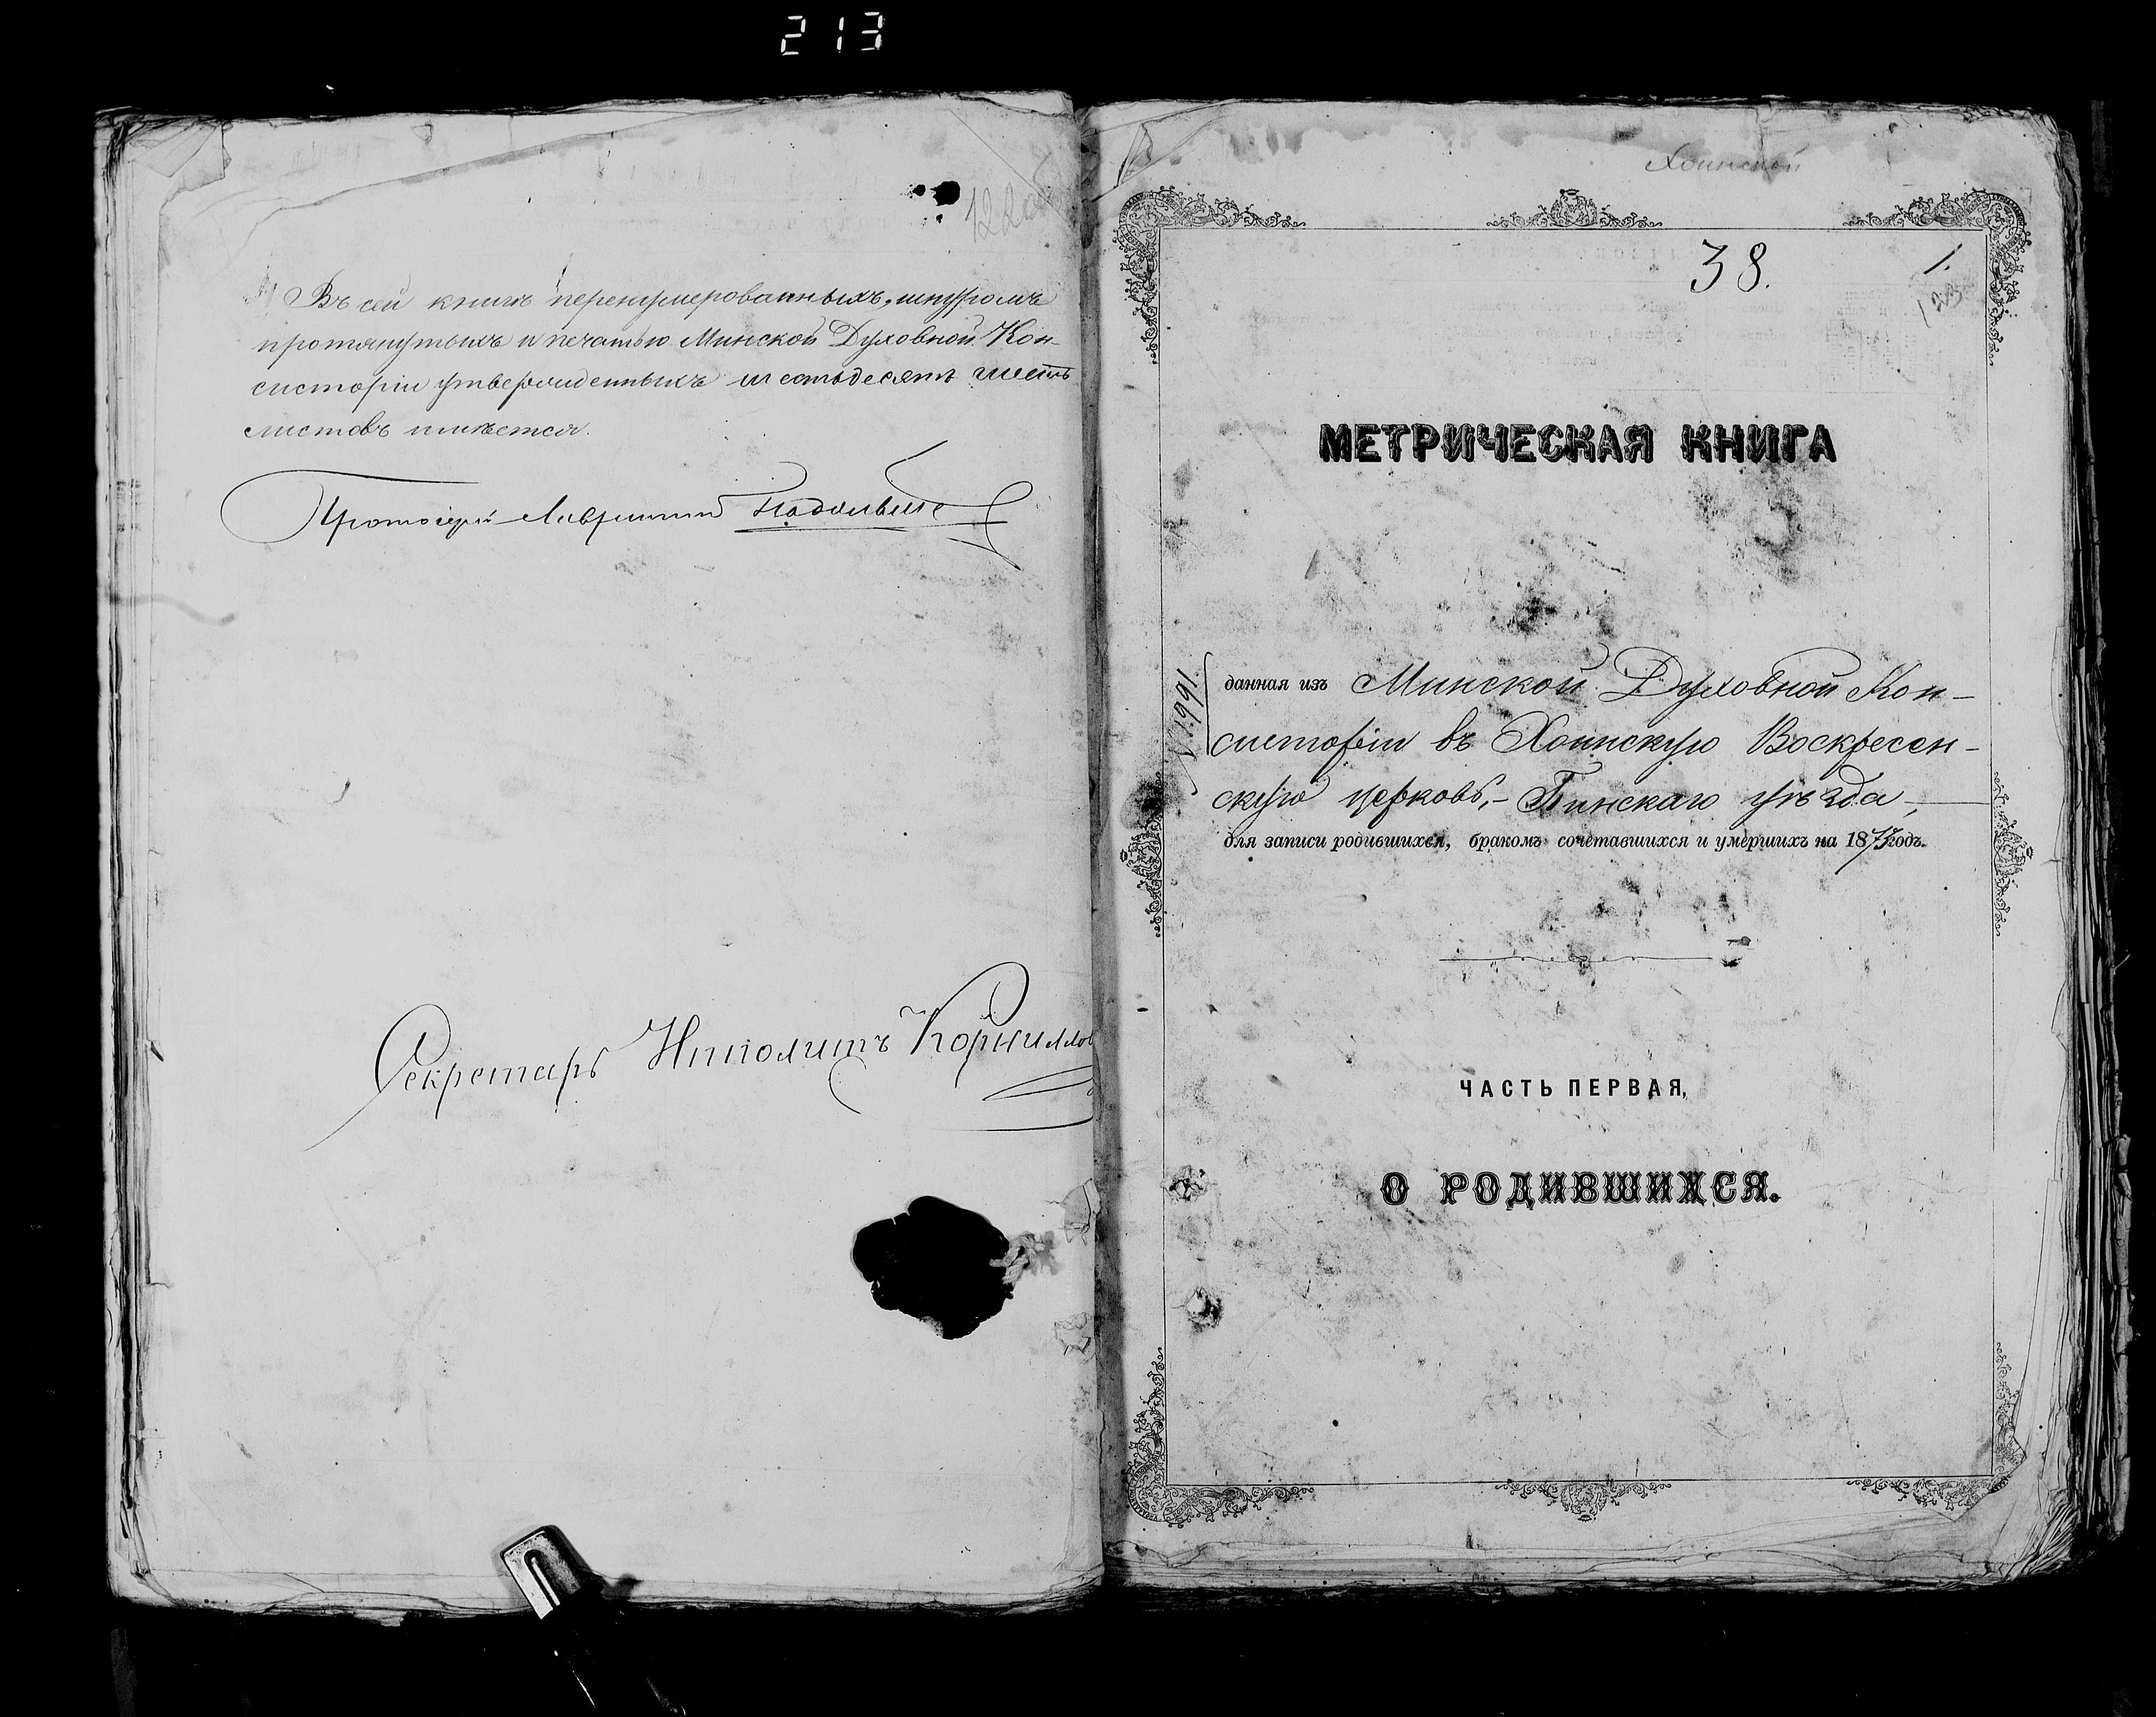 213
122об
Въ сей книгѣ перенумерованныхъ, шнуромъ
протянутыхъ и печатью Минской Духовной Кон-
систоріи утвержденныхъ шестьдесятъ шесть
листовъ имѣется.
Протоіерей
Секретарь Ипполитъ Корнилов
Хоинской
38.
1.
123
МЕТРИЧЕСКАЯ КНИГА
данная изъ Минской Духовной Кон-
систоріи въ Хоинскую Воскресен-
скую церковь,- Пинскаго уѣзда,
для записи родившихся, бракомъ сочетавшихся и умершихъ на 18 годъ.
ЧАСТЬ ПЕРВАЯ,
О РОДИВШИХСЯ.